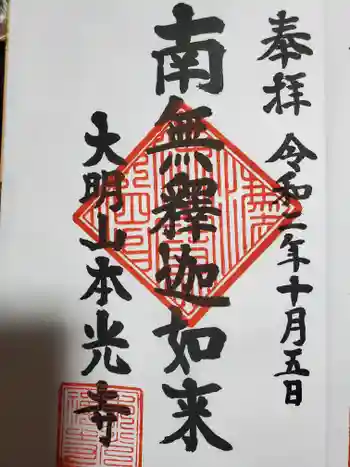 奉拝
令和二年十月五日
南無釋迦如来
大明山本光寺